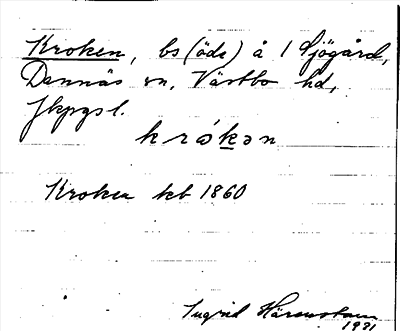 Kroken, bs (öde) å 1 Sjögård,
Dannäs sn, Västbo hd,
Jkpgs l.
krókən
Kroken kb 1860
Ingrid
1931